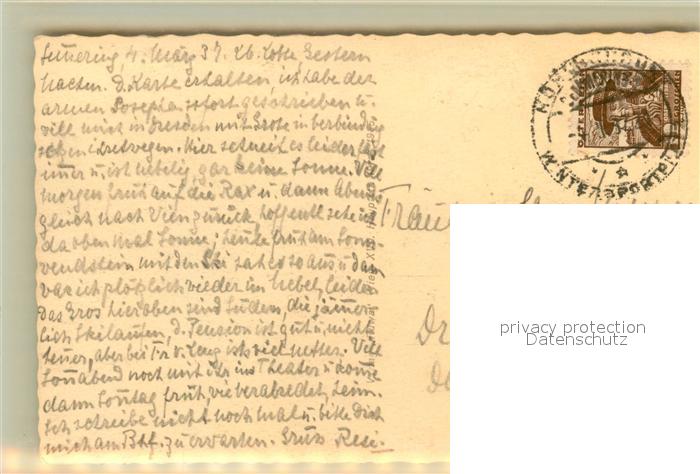 Semmering, 4. März 37. Lb. Lotte, Gestern
Nachm. D. Karte erhalten, ich habe der
armen Josepha sofort geschrieben u.
will mich in Dresden mit Grete in Verbindg
setzen ihretwegen. Hier schneit es leider fast
immer u. ist nebelig, gar keine Sonne. Will
morgen früh auf die Rax u. dann Abens
gleich nach Wien zurück, hoffentl sehe ich
da oben mal Sonne; heute früh am Sonn-
wendstein mit den Ski sah es so aus u. da
war ich plötzlich wieder im Nebel, leider.
Das Gros hier oben sind Juden, die jämmer-
lich Skilaufen, d. Pension ist gut u. nicht
teuer, aber bei Fr. v. ists viel netter. Will
Sonnabend noch mit ihr ins Theater u. komme
dann Sonntag früh, wie verabredet, heim.
Ich schreibe nicht noch mal u. bitte Dich
mich am Bhf. zu erwarten. Gruß Resi.
WINTERSPORTPL
ÖSTERREICH
Wien XIII.
Fräul
Dr
privacy protection
Datenschutz